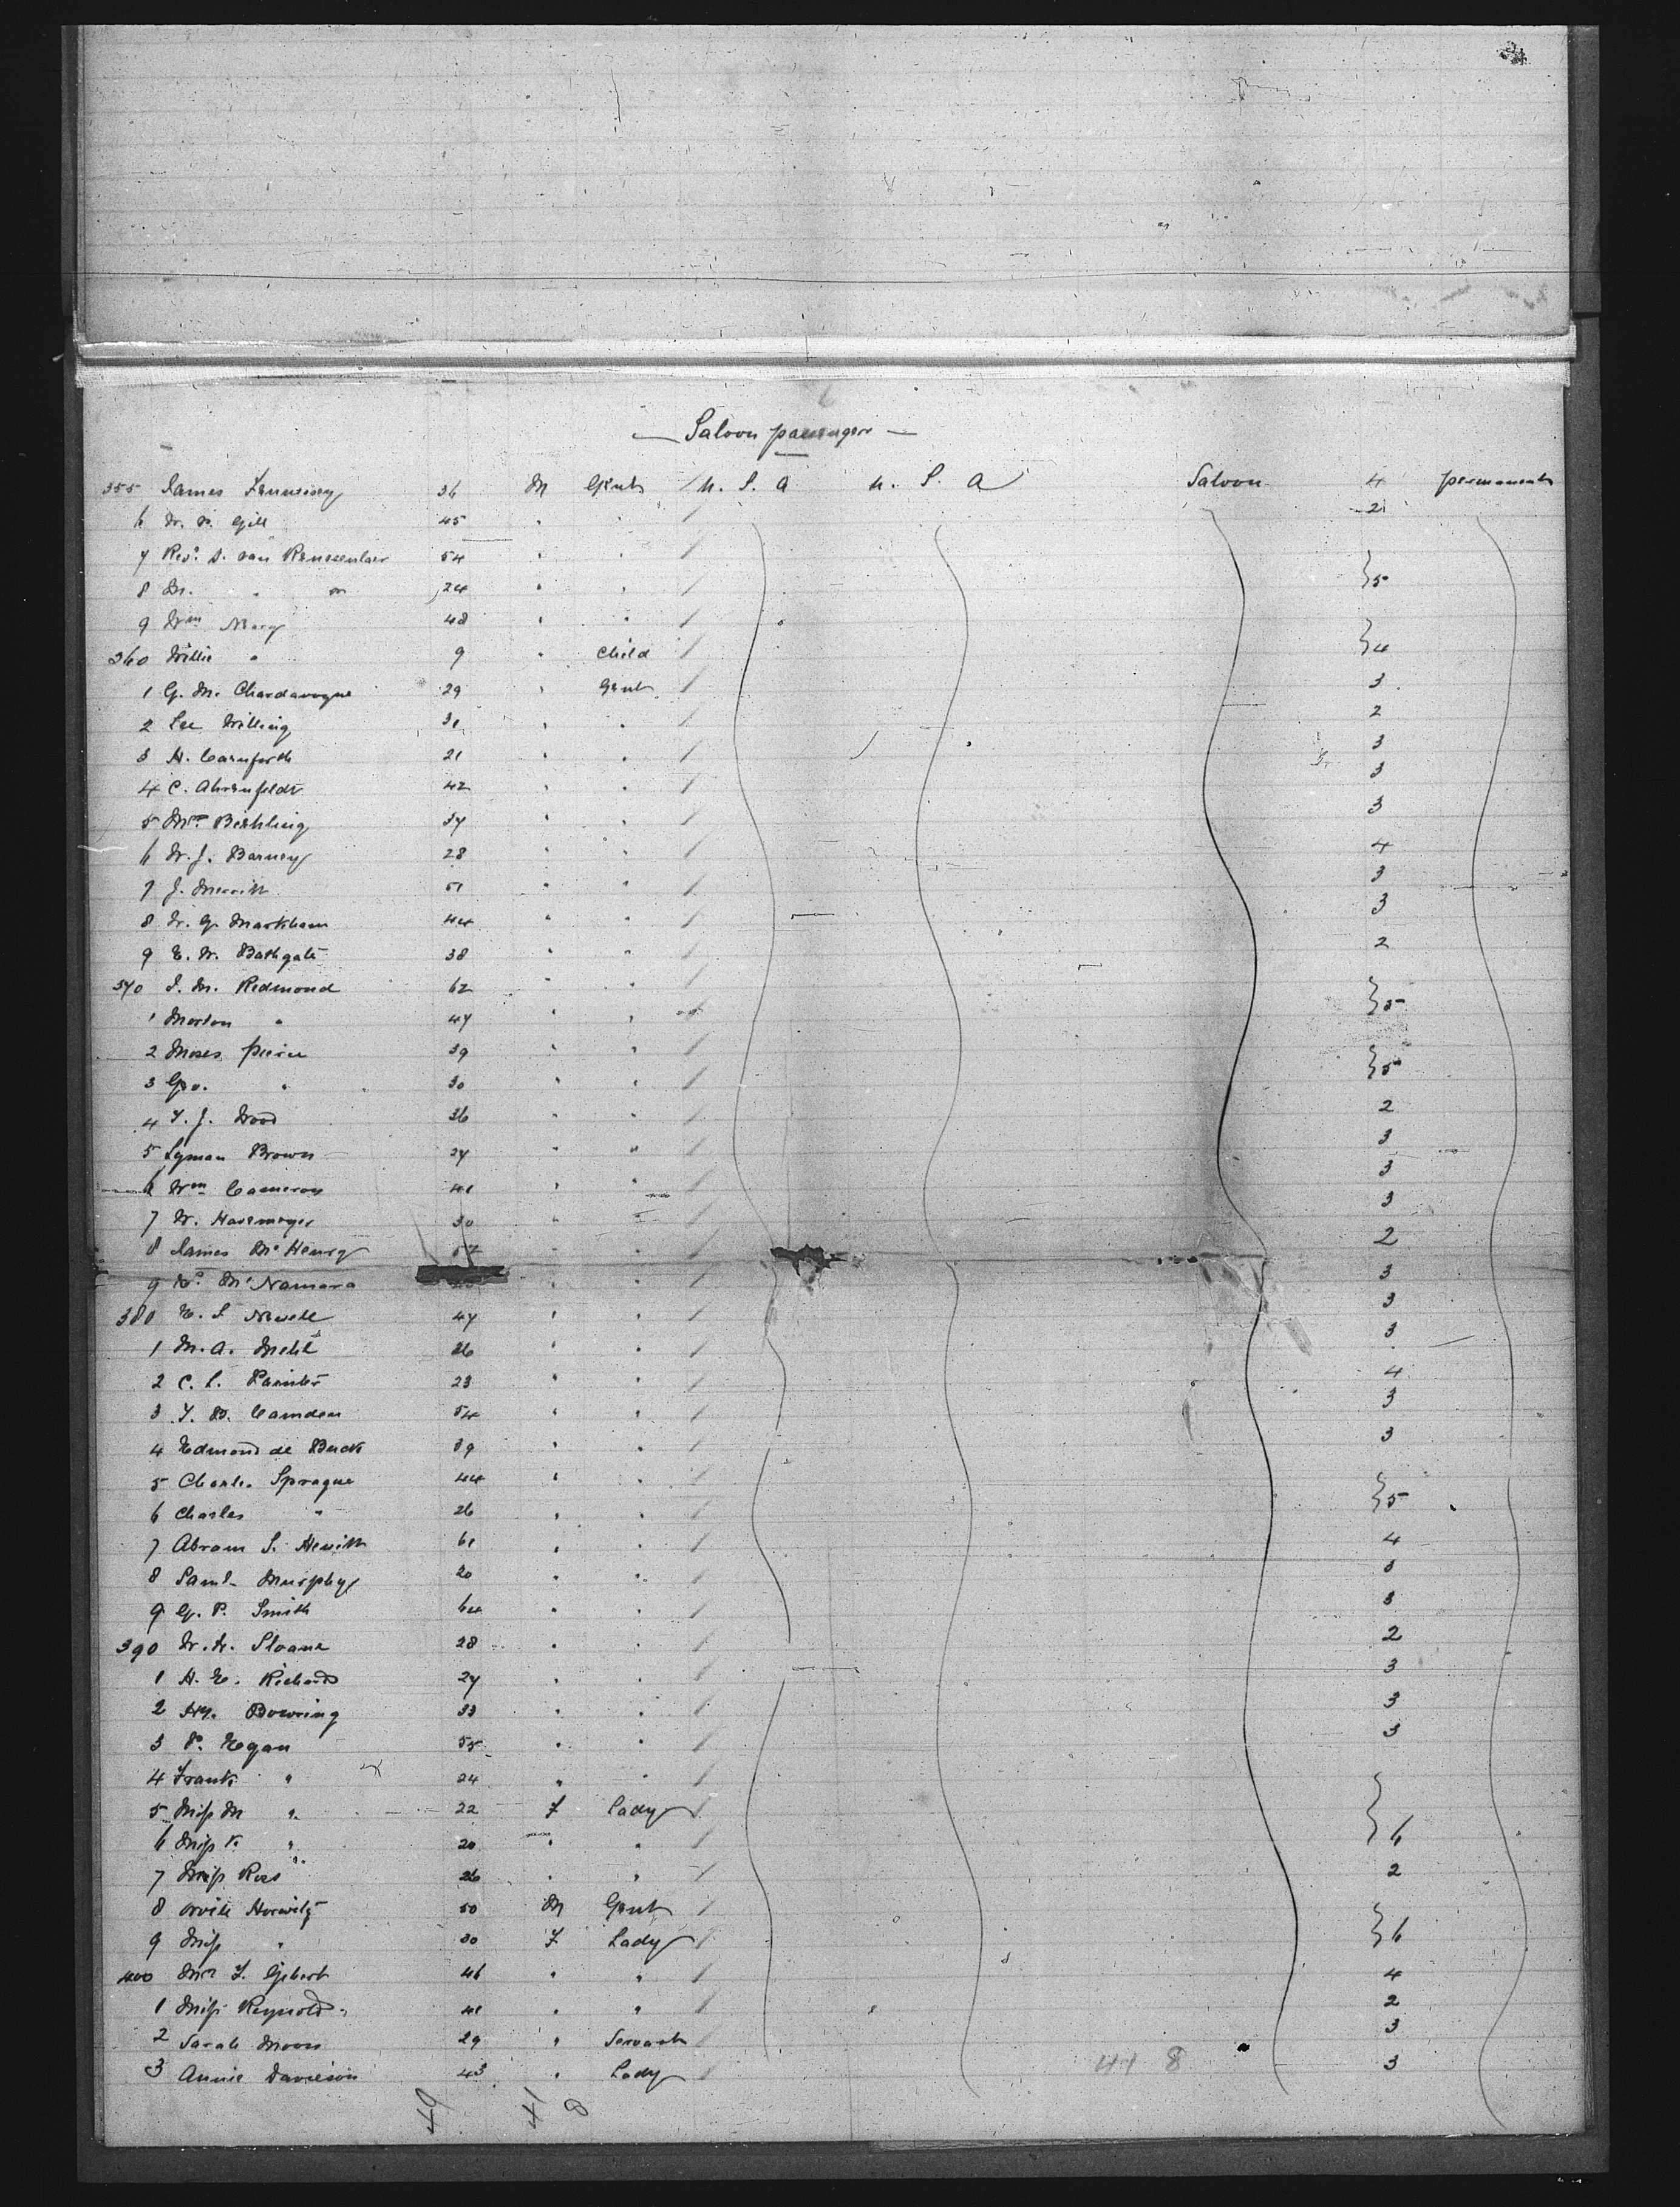 — Saloon passengers —
355 James 36 M Gent / U. S. A U. S. A Saloon 4 permanent
6 W. D. Gill 45 " " / 2
7 Revd. van Rensselaer 54 " " /
8 M. " " 24 " " / } 5
9 Wm 48 " " /
360 Willie " 9 " Child / } 4
1 G. M. Chardavoyne 29 " Gent / 3
2 Lee Willing 31 " " / 2
3 H. Carnforth 21 " " / 3
4 C. Ahrenfeldt 42 " " / 3
5 37 " " / 3
6 W. J. Barney 28 " " / 4
7 J. Merritt 51 " " / 3
8 W. G. Markham 44 " " / 3
9 E. W. Bathgate 38 " " / 2
370 M. Redmond 62 " " /
1 Morton " 47 " " / } 5
2 Moses Peirce 39 " " /
3 Geo. " 30 " " / } 5
4 J. Wood 36 " " / 2
5 Lyman Brown 27 " " / 3
6 Wm Cameron 41 " " / 3
7 W. Havemeyer 30 " " / 3
8 James McHenry 57 " " / 2
9 McNamara " " / 3
380 Newell 47 " " / 3
1 M. A. 26 " " / 3
2 C. L. Painter 23 " " / 4
3 Camden 54 " " / 3
4 Edmond de Buck 39 " " / 3
5 Charles Sprague 44 " " /
6 Charles " 26 " " / } 5
7 Abram S. Hewitt 61 " " / 4
8 Saml. Murphy 20 " " / 3
9 G. P. Smith 64 " " / 3
390 Sloane 28 " " / 2
1 H. E. Richards 27 " " / 3
2 Hy. Bowring 33 " " / 3
3 P. Egan 55 " " / 3
4 Frank " 24 " " /
5 Miss M " 22 F Lady /
6 Miss " 20 " " / } 6
7 Miss " 26 " " / 2
8 Orville Horwitz 50 M Gent /
9 Miss " 30 F Lady / } 6
400 Mrs F. Gebert 46 " " / 4
1 Miss Reynolds 41 " " / 2
2 Sarah Moore 29 " Servant / 3
3 Annie Davieson 43 " Lady / 3
41 8
49 41 8